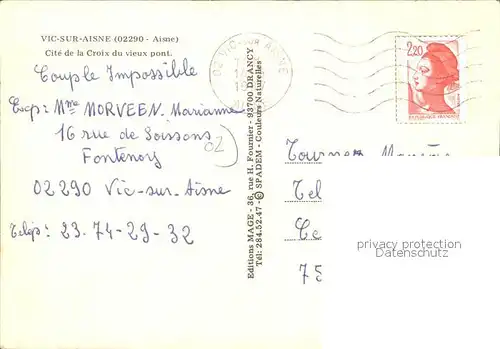 VIC-SUR-AISNE (02290 - Aisne)
Cité de la Croix du vieux pont.
Couple Impossible
Exp: Mme MORVEEN. Marianne
16 rue de Soissons
02
Fontenoy
02290 Vic-sur-Aisne
Telep: 23-74-29-32
Editions MAGE - 36, rue H. Fournier - 93700 DRANCY
Tél: 284.52.47 - © SPADEM - Couleurs Naturelles
02 VIC SUR AISNE
2,20
Tournez
Tel
Ce
75
privacy protection
Datenschutz